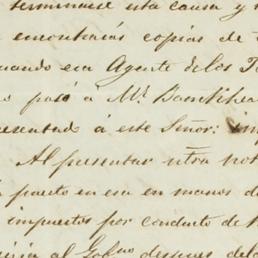 terminase esta causa y
encontrarás copias de
cuando era Agente de los
pasó á Mr.
presentado á este Señor:
Al presentar ntra not
puesto en esa en manos d
impuestos por conducto de
al Gobno despues del